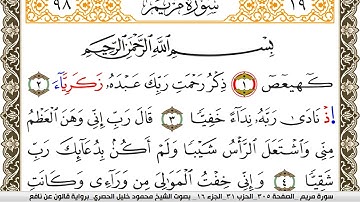 ٩٨ سُورَةُ مَرْيَمَ ١٩
بِسْمِ اِ۬للَّهِ اِ۬لرَّحْمَٰنِ اِ۬لرَّحِيمِ
كَٓهيعَٓصَٓ ١ ذِكْرُ رَحْمَتِ رَبِّكَ عَبْدَهُۥ زَكَرِيَّآءَ ٢
ا۪ذْ نَادَىٰ رَبَّهُۥ نِدَآءً خَفِيّٗا ٣ قَالَ رَبِّ إِنِّى وَهَنَ اَ۬لْعَظْمُ
مِنِّى وَاشْتَعَلَ اَ۬لرَّأْسُ شَيْبٗا وَلَمْ أَكُنۢ بِدُعَآئِكَ رَبِّ
شَقِيّٗا ٤ وَإِنِّى خِفْتُ اُ۬لْمَوَٰلِىَ مِنْ وَّرَآءِى وَكَانَتِ
سورة مريم _ الصفحة ٣٠٥ _ الحزب ٣١ _ الجزء ١٦ _ بصوت الشيخ محمود خليل الحصري _ برواية قالون عن نافع